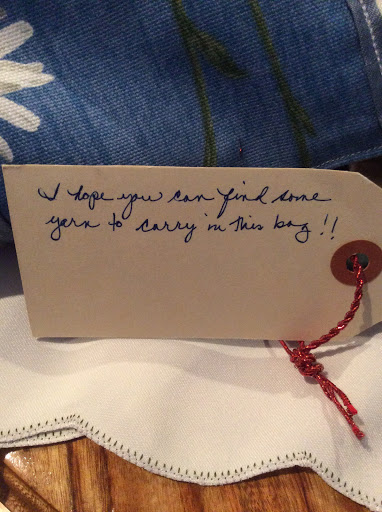 I hope you can find some
yarn to carry in this bag!!